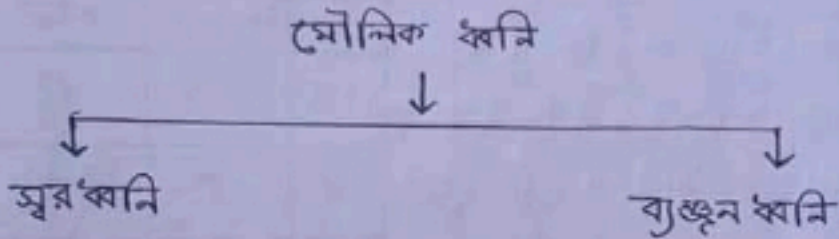 মৌলিক ধ্বনি
স্বরধ্বনি
ব্যঞ্জন ধ্বনি